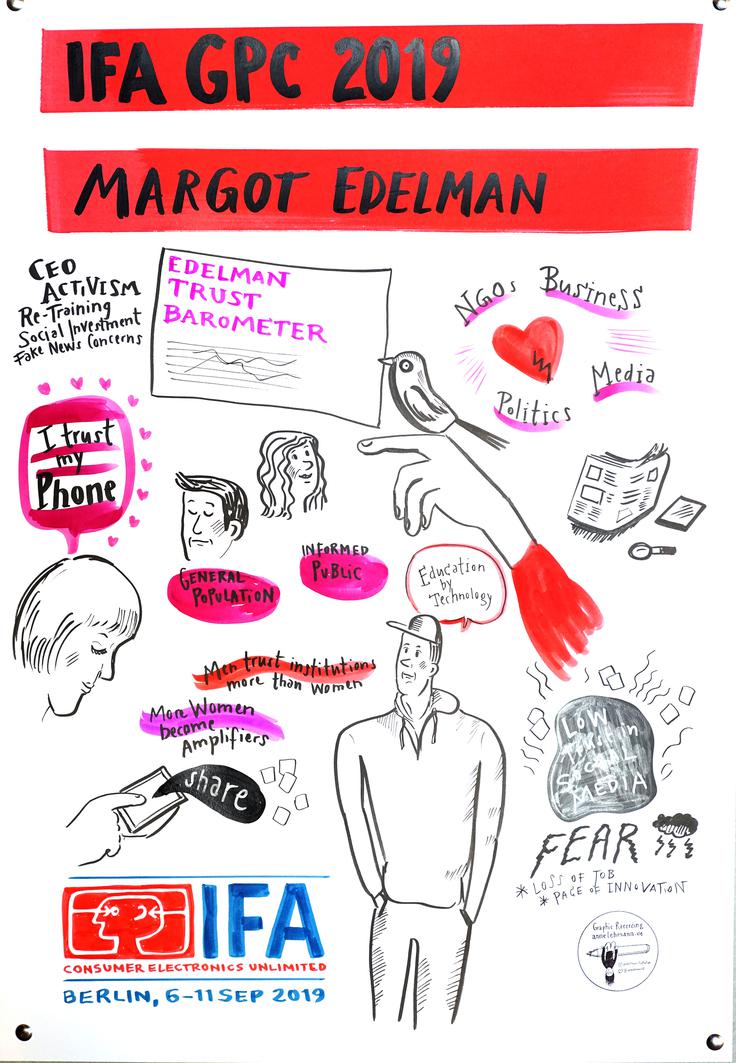 IFA GPC 2019
MARGOT EDELMAN
CEO
ACTIVISM
Re-Training
Social Investment
Fake News Concerns
EDELMAN
TRUST
BAROMETER
NGOs
Business
Media
Politics
I trust
my
Phone
GENERAL
POPULATION
INFORMED
PUBLIC
Education
by
Technology
Men trust institutions
more than Women
More Women
become
Amplifiers
share
LOW
TRUST in
SOCIAL
MEDIA
FEAR
* LOSS OF JOB
* PACE OF INNOVATION
IFA
CONSUMER ELECTRONICS UNLIMITED
BERLIN, 6-11 SEP 2019
Graphic Recording
annelehmann.de